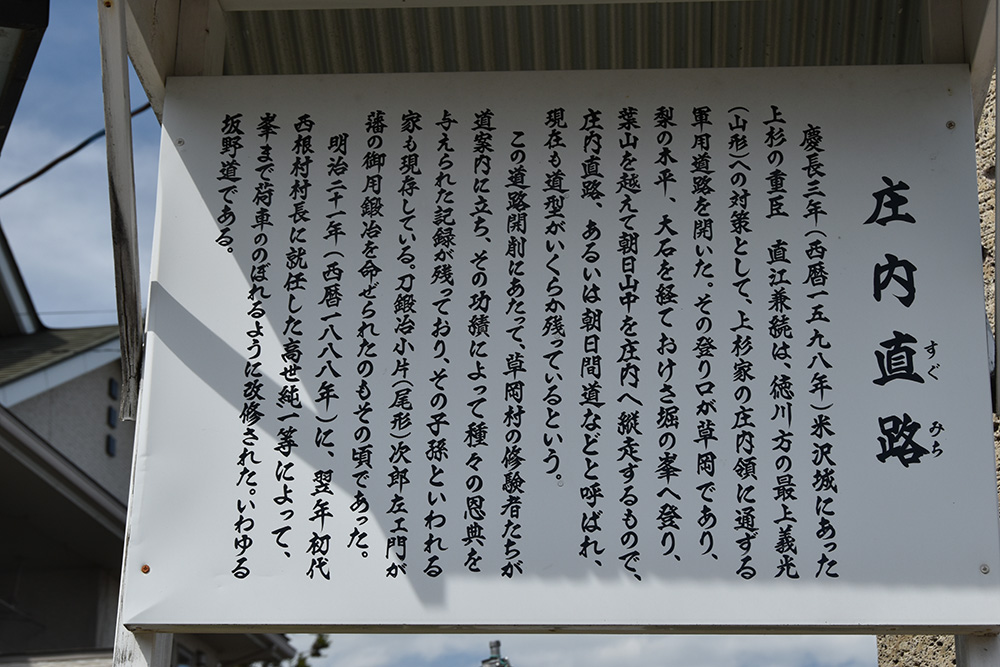 庄内直路
すぐ みち
慶長三年(西暦一五九八年)米沢城にあった
上杉の重臣 直江兼続は、徳川方の最上義光
(山形)への対策として、上杉家の庄内領に通ずる
軍用道路を開いた。その登り口が草岡であり、
梨の木平、大石を経ておけさ堀の峯へ登り、
葉山を越えて朝日山中を庄内へ縦走するもので、
庄内直路、あるいは朝日間道などと呼ばれ、
現在も道型がいくらか残っているという。
この道路開削にあたって、草岡村の修験者たちが
道案内に立ち、その功績によって種々の恩典を
与えられた記録が残っており、その子孫といわれる
家も現存している。刀鍛冶小片(尾形)次郎左エ門が
藩の御用鍛冶を命ぜられたのもその頃であった。
明治二十一年(西暦一八八八年)に、翌年初代
西根村村長に就任した高世純一等によって、
峯まで荷車ののぼれるように改修された。いわゆる
坂野道である。